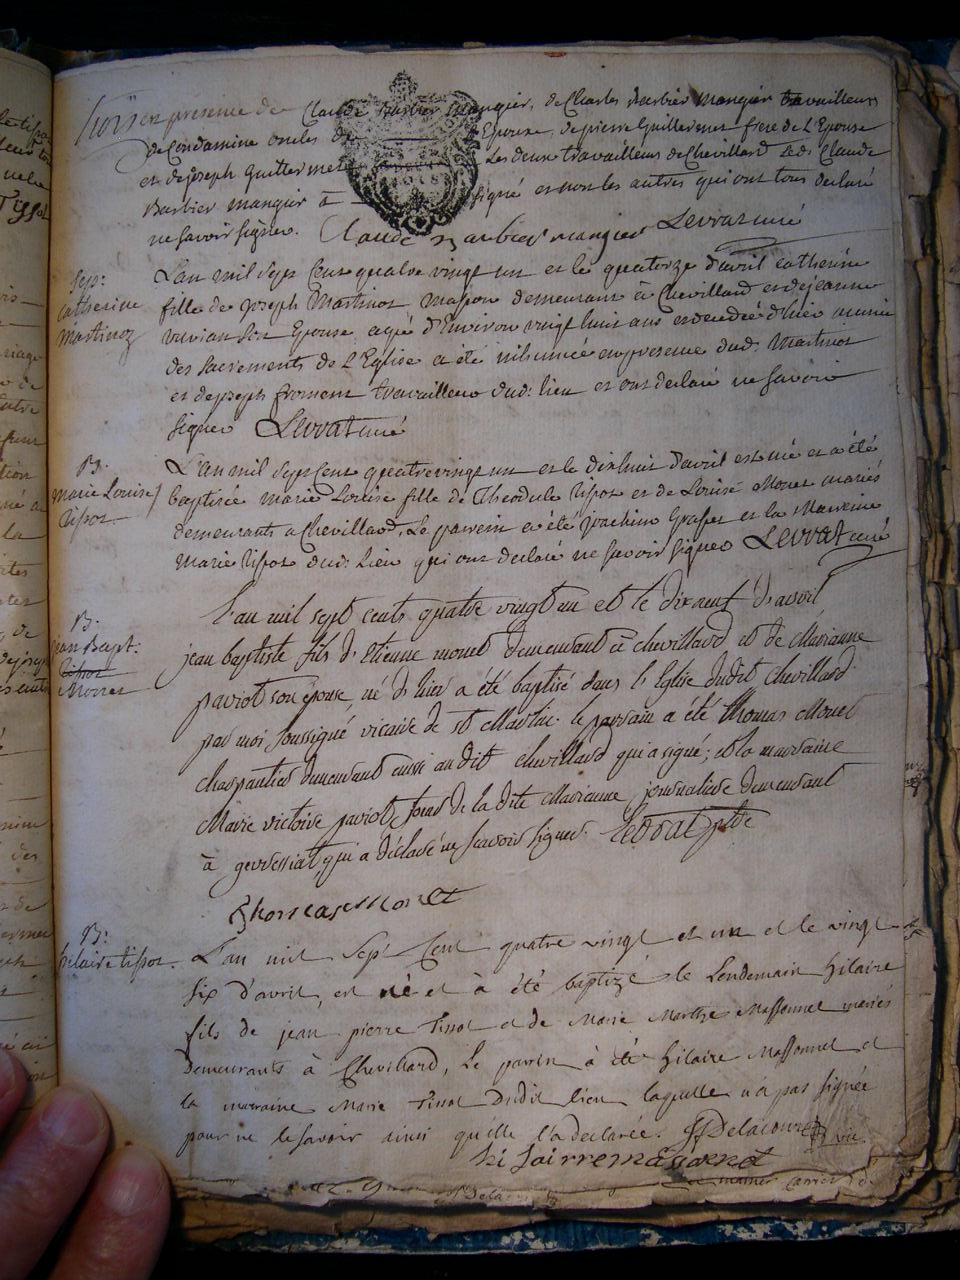 en presence de Claude Barbier Mangier, de Charles Barbier Mangier travailleurs
de Condamine oncles de Epouse, de pierre Guillermet frere de L'Epouse
et de joseph Guillermet Les deux travailleurs de Chevillard Led. Claude
Barbier mangier à signé et non les autres qui ont tous declaré
ne savoir signer. Claude barbier mangier Levrat curé
Sep:
catherine
Martinoz
L'an mil Sept Cent quatre vingt un et le quatorze d'avril catherine
fille de joseph Martinoz masson demeurant à Chevillard et de jeanne
son Epouse agée d'Environ vingt huit ans et decedée d'hier munie
des Sacrements de L'Eglise a été inhumée en presence dud. Martinoz
et de joseph froment travailleur dud: lieu et ont declaré ne savoir
signer Levrat curé
B.
marie Louise
Tissot
L'an mil Sept Cent quatrevingt un et le dixhuit d'avril est née et a été
baptisée marie Louise fille de Theodule Tissot et de Louise Monet mariés
demeurants a Chevillard, Le parrein a été joachim Grasset et la Marreine
Marie Tissot dud: Lieu qui ont declaré ne savoir signer Levrat curé
B.
jean Bapt:
Tissot
Monet
l'an mil sept cents quatre vingt un et le dix neuf d'avril
jean baptiste fils d'Etienne monet demeurant à chevillard et de Marianne
paviot son épouse, né d'hier a été baptisé dans l'Eglise dudit Chevillard
par moi soussigné vicaire de st Martin. le parrain a été Thomas Monet
charpantier demeurant aussi au dit chevillard qui a signé; et la marraine
Marie victoire paviot, soeur de la dite Marianne, journalière demeurant
à gevressiat, qui a déclaré ne scavoir signer. Levrat ptre
Thomas monet
B:
hilaire tissot.
L'an mil Sept Cent quatre vingt et un et le vingt
six d'avril, est né et à été baptizé le Lendemain hilaire
fils de jean pierre Tissot et de Marie Marthe Massonnet mariés
Demeurants à Chevillard, Le parrin à été hilaire Massonnet et
la marraine Marie Tissot Dudit lieu laquelle n'a pas signée
pour ne le savoir ainsi quelle l'a declarée. Delacour vic.
hi lairremasonet